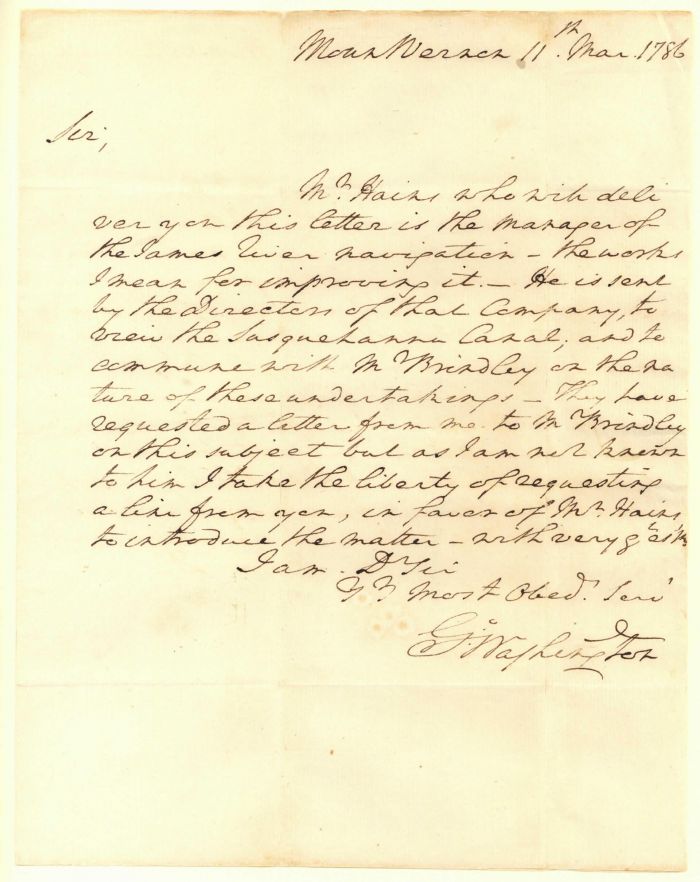 Mount Vernon 11th. Mar. 1786
Sir,
Mr. Hains who will deli
ver you this letter is the manager of
the James River navigation – the works
I mean for improving it. – He is sent
by the Directors of that Company, to
view the Susquehanna Canal; and to
commune with Mr Brindley on the na
ture of these undertakings – They have
requested a letter from me to Mr Brindley
on this subject but as I am not known
to him I take the liberty of requesting
a line from you, in favor of Mr. Hains
to introduce the matter – with very gt. est'm
I am – Dr Sir
Yr Most Obedt. Servt
Go: Washington